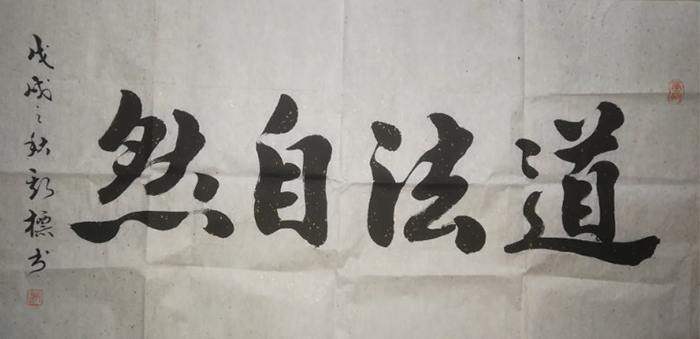 道法自然
戊戌之秋 标书